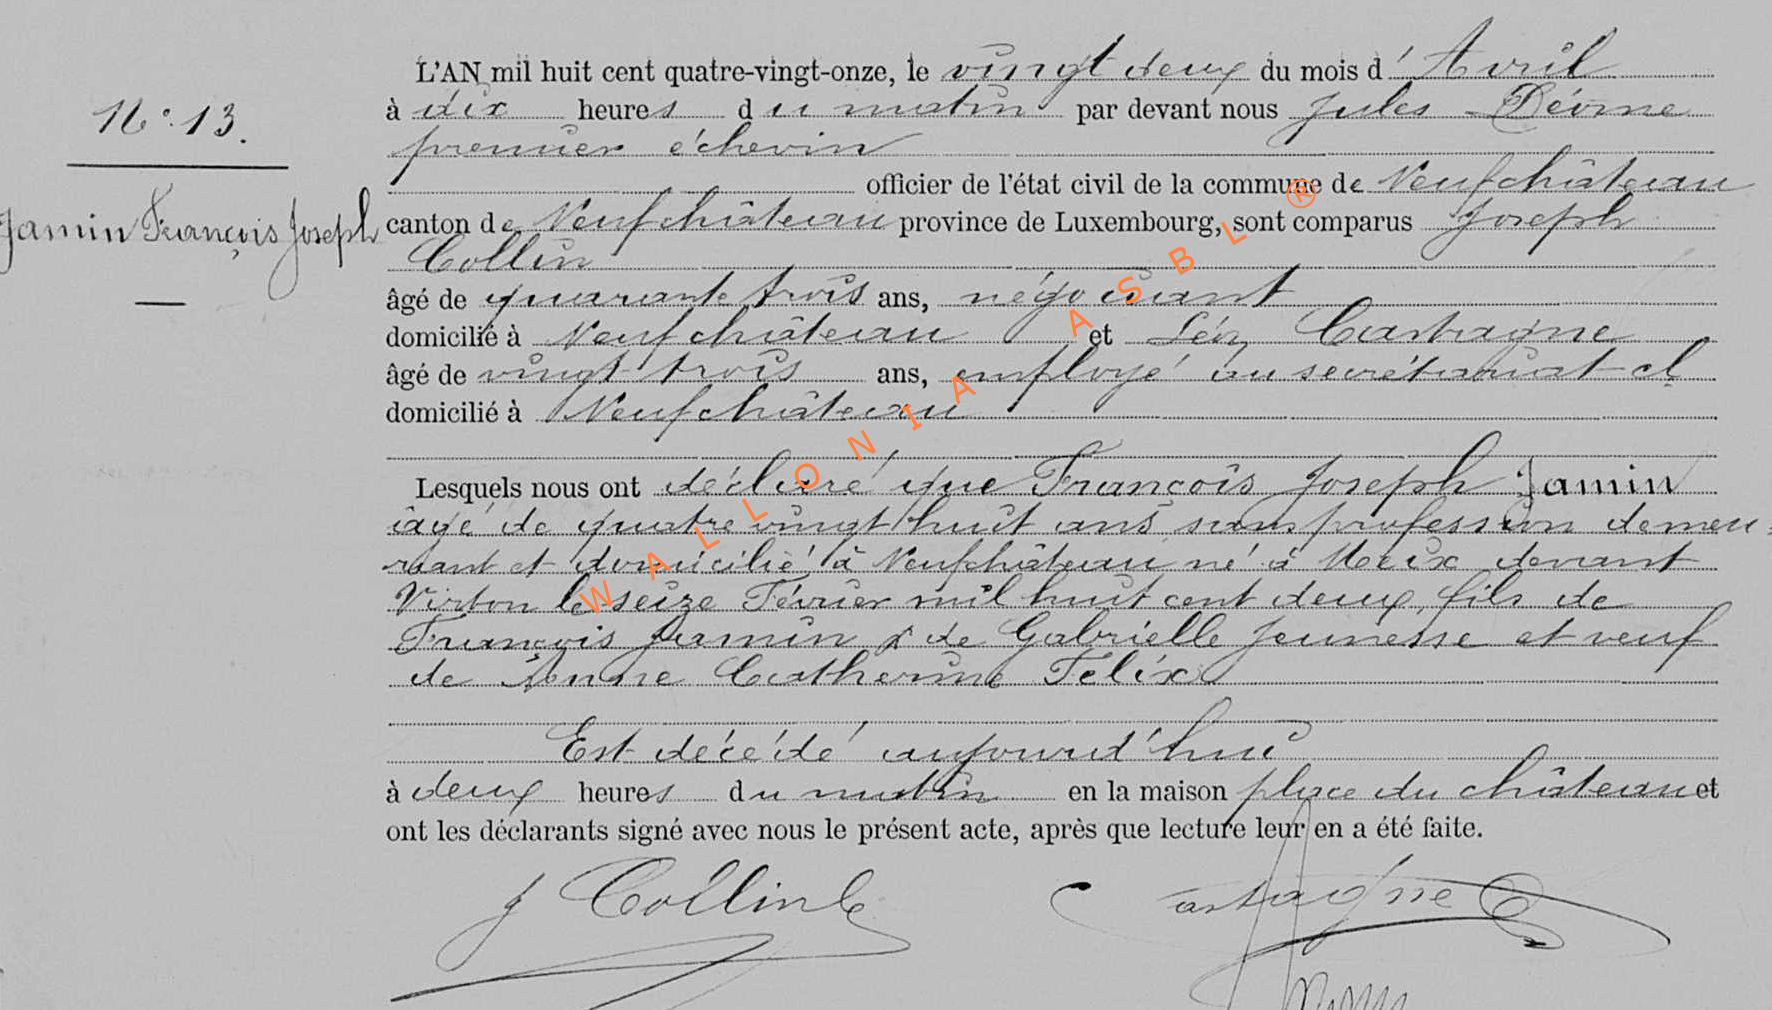 L'AN mil huit cent quatre-vingt-onze, le vingt deux du mois d'Avril
N° 13.
à dix heures du matin par devant nous Jules
premier échevin
officier de l'état civil de la commune de Neufchâteau
Jamin François Joseph
canton de Neufchâteau province de Luxembourg, sont comparus Joseph
Collin
âgé de quarante trois ans, négociant
domicilié à Neufchâteau et Léon Castagne
âgé de vingt trois ans, employé au secrétariat et
domicilié à Neufchâteau
Lesquels nous ont déclaré que François Joseph Jamin
âgé de quatre vingt huit ans sans profession demeu=
rant et domicilié à Neufchâteau né à Meix devant
Virton le seize Février mil huit cent deux, fils de
François Jamin & de Gabrielle Jeunesse et veuf
de Anne Catherine Felix
Est décédé aujourd'hui
à deux heures du matin en la maison place du château et
ont les déclarants signé avec nous le présent acte, après que lecture leur en a été faite.
J Collin Castagne
WALLONIA ASBL ®